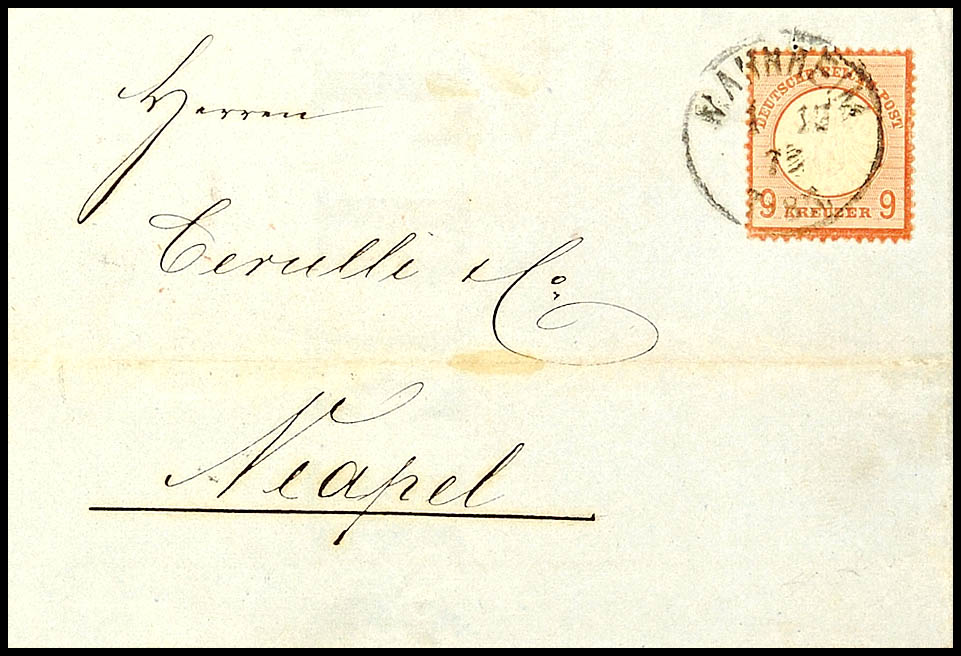 Herren
Cerulli & Co.
Neapel
DEUTSCHE REICHS-POST
9 KREUZER 9